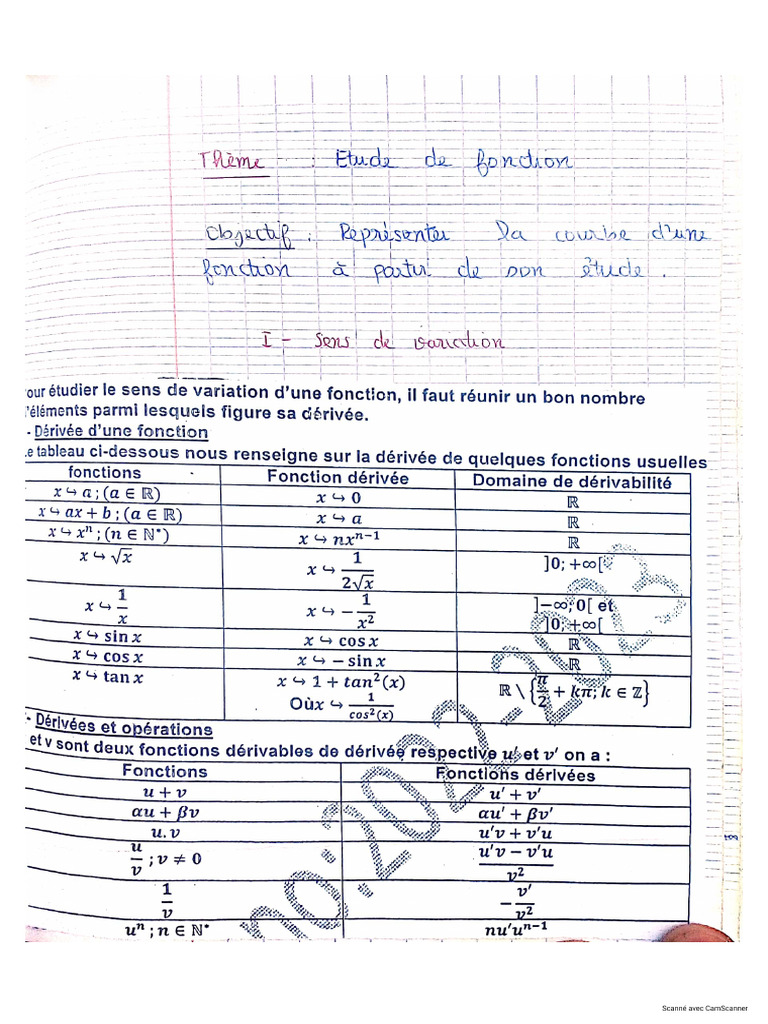 Thème : Etude de fonction
Objectif : Représenter la courbe d'une
fonction à partir de son étude.
I - Sens de variation
our étudier le sens de variation d'une fonction, il faut réunir un bon nombre
'éléments parmi lesquels figure sa dérivée.
- Dérivée d'une fonction
e tableau ci-dessous nous renseigne sur la dérivée de quelques fonctions usuelles
fonctions Fonction dérivée Domaine de dérivabilité
x ↪ a ; (a ∈ ℝ) x ↪ 0 ℝ
x ↪ ax + b ; (a ∈ ℝ) x ↪ a ℝ
x ↪ xⁿ ; (n ∈ ℕ*) x ↪ nxⁿ⁻¹ ℝ
x ↪ √x x ↪ 1/(2√x) ]0; +∞[
x ↪ 1/x x ↪ −1/x² ]−∞; 0[ et
]0; +∞[
x ↪ sin x x ↪ cos x ℝ
x ↪ cos x x ↪ − sin x ℝ
x ↪ tan x x ↪ 1 + tan²(x) ℝ \ {π/2 + kπ; k ∈ ℤ}
Où x ↪ 1/cos²(x)
- Dérivées et opérations
et v sont deux fonctions dérivables de dérivée respective u′ et v′ on a :
Fonctions Fonctions dérivées
u + v u′ + v′
αu + βv αu′ + βv′
u. v u′v + v′u
u/v ; v ≠ 0 (u′v − v′u)/v²
1/v −v′/v²
uⁿ ; n ∈ ℕ* nu′uⁿ⁻¹
no:2022-2023
Scanné avec CamScanner